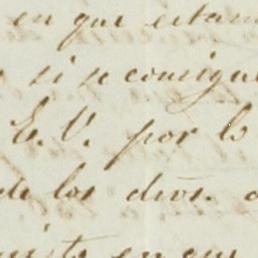 en que estam
si se consigue
E. V. por lo
de los dros.
en que